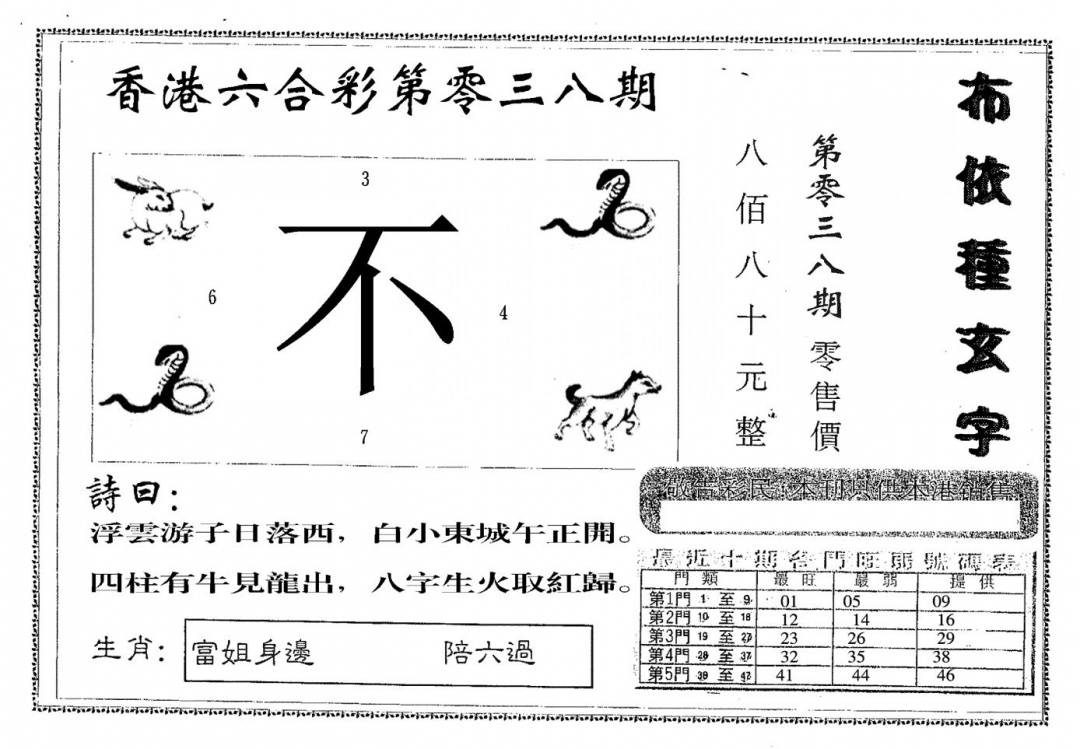 香港六合彩第零三八期
布依種玄字
第零三八期零售價
八佰八十元整
3
不
6
4
7
詩曰：
浮雲游子日落西，白小東城午正開。
四柱有牛見龍出，八字生火取紅歸。
生肖： 富姐身邊 陪六過
敬告彩民：本刊只供本港銷售
最近十期各門旺弱號碼表
門類 最旺 最弱 提供
第1門 1 至 9 01 05 09
第2門 10 至 18 12 14 16
第3門 19 至 27 23 26 29
第4門 28 至 37 32 35 38
第5門 38 至 47 41 44 46